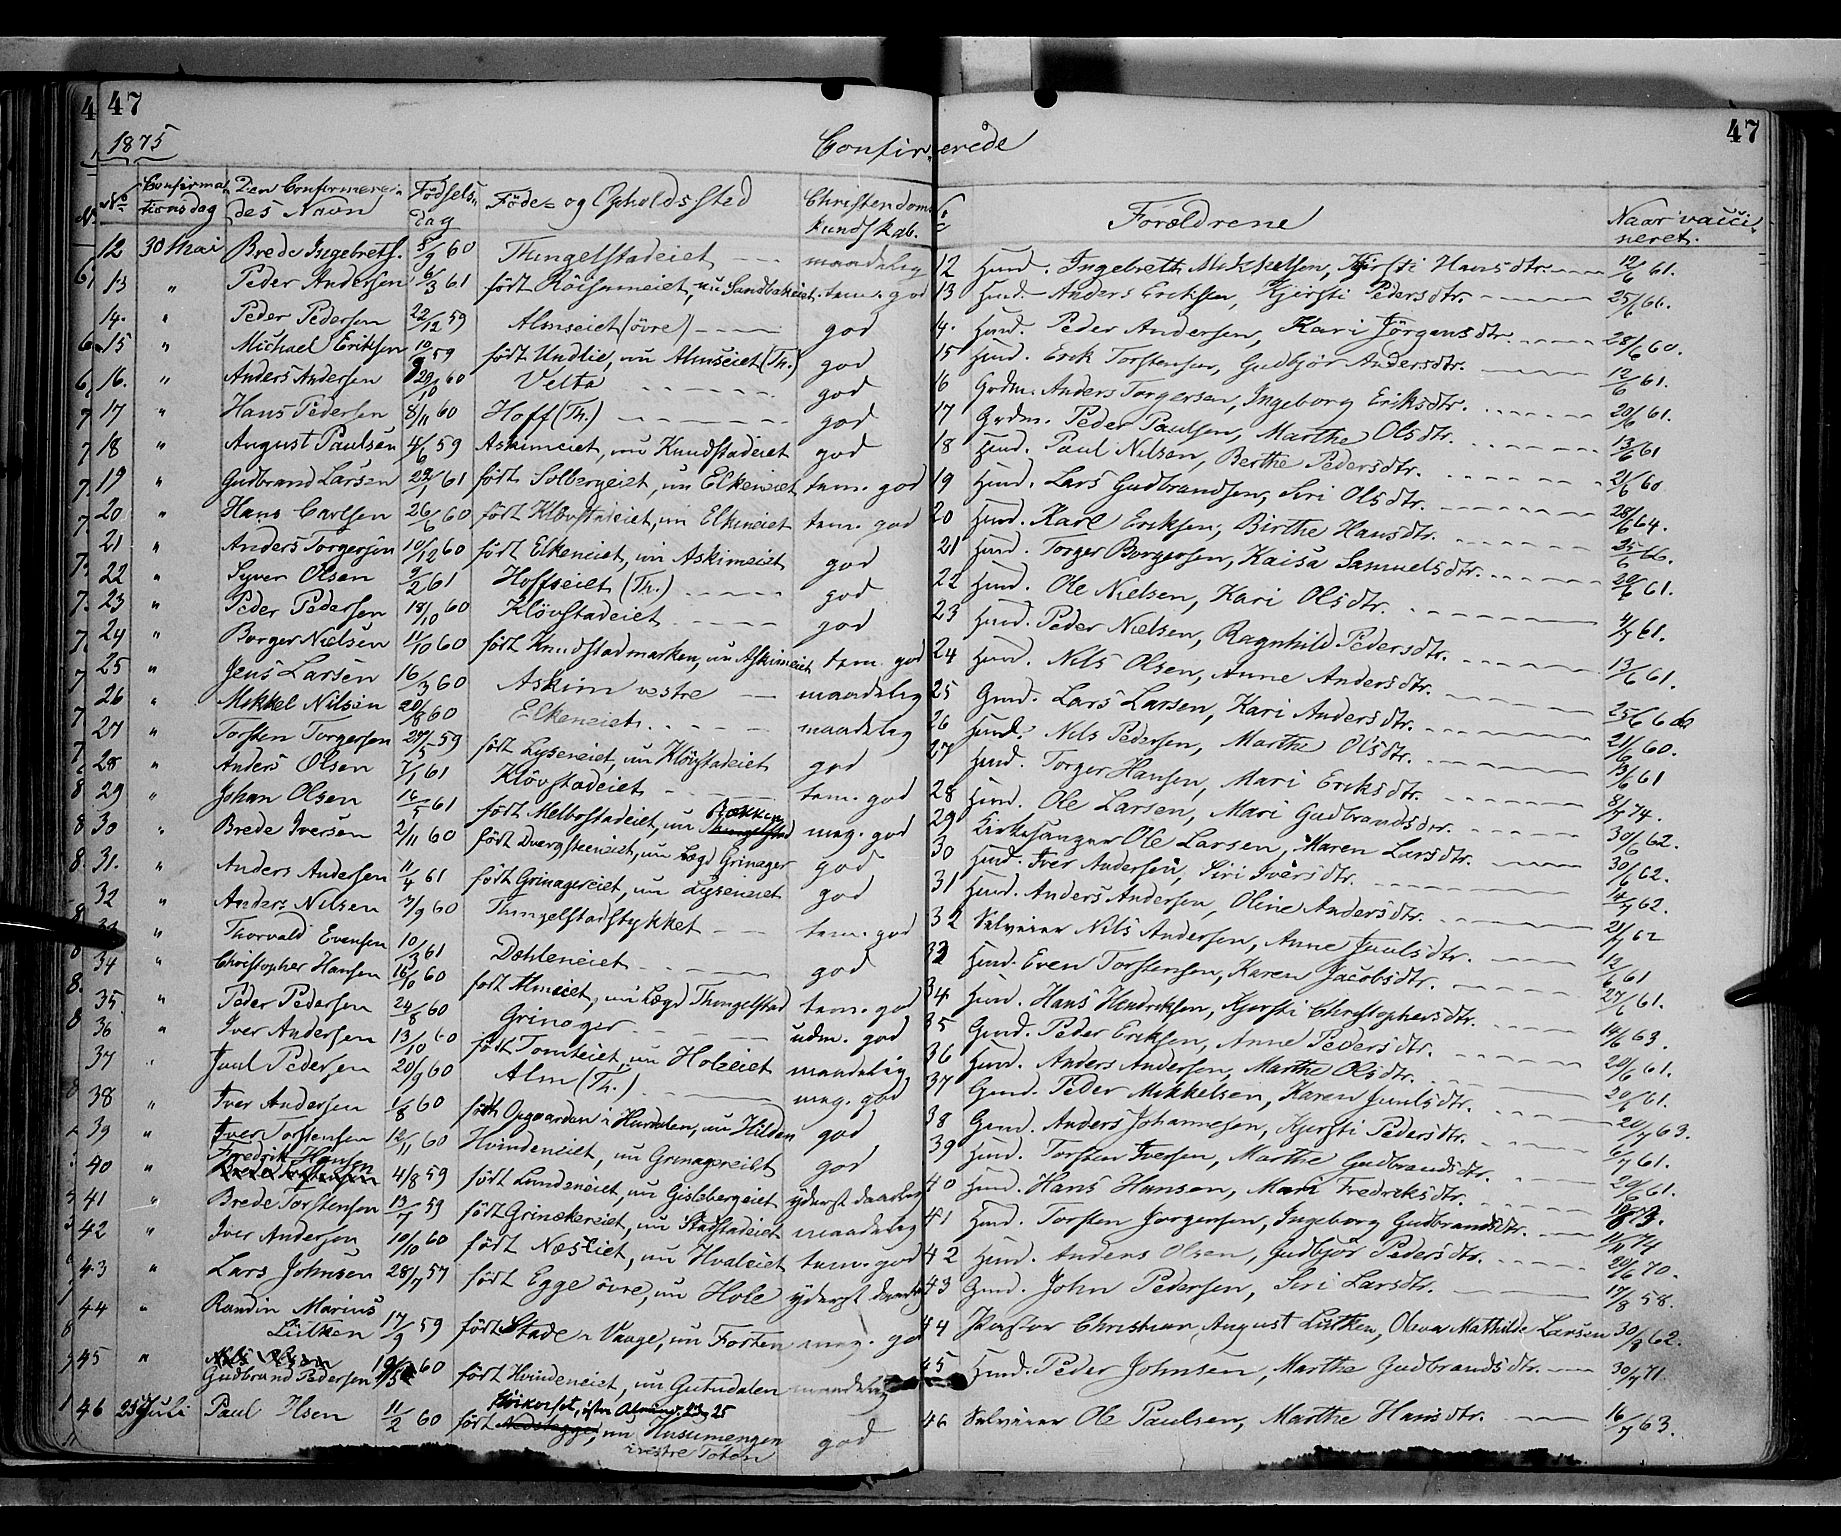 47
47
1875
Confirmerede
No Confirmationsdag Den Confirmerendes Navn Fødselsdag Føde- og Opholdssted Christendomskundskab. No Forældrene Naar vaccineret.
12 30 Mai Brede Ingebretf. 5/9 60 Thingelstadeiet maadelig 12 Huusm. Ingebreth Mikkelsen, Kjersti Hansdtr. 12/6 61.
13 " Peder Andersen 6/3 61 født Röisumeiet, nu Sandbakeiet tem. god 13 Huusm. Anders Eriksen, Kjersti Pedersdtr. 25/6 66.
14. " Peder Pedersen 22/12 59 Almseiet (övre) god 14. Huusm. Peder Andersen, Kari Jörgensdtr. 28/6 60.
15 " Michael Eriksen 10/9 59 født Undlie, nu Almseiet (Th.) god 15 Huusm. Erik Torstensen, Gudbjør Andersdtr. 12/6 61.
16. " Anders Andersen 29/10 60 Velta god 16 Grdm. Anders Torgersen, Ingeborg Eriksdtr. 20/6 61.
17 " Hans Pedersen 8/11 60 Hoff (Th.) god 17 Grdm. Peder Paulsen, Marthe Olsdtr. 13/6 61
18 " August Paulsen 4/6 59 Askimeiet, nu Knudstadeiet god 18 Huusm. Paul Nilsen, Berthe Pedersdtr. 21/6 60
19 " Gudbrand Larsen 22/1 61 født Solbergeiet, nu Elkeneiet tem. god 19 Huusm. Lars Gudbrandsen, Siri Olsdtr. 28/6 64.
20 " Hans Carlsen 26/6 60 født Klövstadeiet, nu Elkeneiet tem. god 20 Huusm. Karl Eriksen, Birthe Hansdtr. 25/6 66.
21 " Anders Torgersen 10/12 60 født Elkeneiet, nu Askimeiet god 21 Huusm. Torger Borgersen, Kaisa Samuelsdtr. 20/6 61.
22 " Syver Olsen 9/2 61 Hoffseiet (Th.) god 22 Huusm. Ole Nielsen, Kari Olsdtr. 4/7 61.
23 " Peder Pedersen 18/10 60 Klövstadeiet god 23 Huusm. Peder Nielsen, Ragnhild Pedersdtr. 13/6 61.
24 " Borger Nielsen 11/10 60 født Knudstadmarken, nu Askimeiet tem. god 24 Huusm. Nils Olsen, Anne Andersdtr.
25 " Jens Larsen 16/3 60 Askim vestre maadelig 25 Grdm. Lars Larsen, Kari Andersdtr. 25/6 66
26 " Mikkel Nilsen 20/8 60 Elkeneiet maadelig 26 Huusm. Nils Pedersen, Marthe Olsdtr. 21/6 60.
27 " Torsten Torgersen 27/5 59 født Lyseneiet, nu Klövstadeiet god 27 Huusm. Torger Hansen, Mari Eriksdtr. 13/6 61
28 " Anders Olsen 7/1 61 Klövstadeiet tem. god 28 Huusm. Ole Larsen, Mari Gudbrandsdtr. 8/7 74.
29 " Johan Olsen 16/5 61 født Melbostadeiet, nu Bækken meg. god 29 Kirkesanger Ole Larsen, Maren Larsdtr. 30/6 62.
30 " Brede Iversen 2/11 60 født Dvergsteneiet, nu Lægd Grinager god 30 Huusm. Iver Andersen, Siri Iversdtr. 30/6 62.
31. " Anders Andersen 11/4 61 født Grinagereiet, nu Lyseneiet god 31 Huusm. Anders Andersen, Oline Andersdtr. 14/7 62.
32 " Anders Nilsen 3/9 60 Thingelstadstykket tem. god 32 Selveier Nils Andersen, Anne Juulsdtr. 21/7 62
33 " Thorvald Evensen 10/3 61 Dæhleneiet god 33 Huusm. Even Torstensen, Karen Jacobsdtr. 12/6 61
34 " Christopher Hansen 16/10 60 født Almseiet, nu Lægd Thingelstad tem. god 34 Huusm. Hans Hendriksen, Kjersti Christophersdtr. 27/6 61.
35. " Peder Pedersen 24/8 60 Grinager udm. god 35 Grdm. Peder Eriksen, Anne Pedersdtr. 14/6 63.
36 " Iver Andersen 13/10 60 født Tomteiet, nu Holeeiet maadelig 36 Huusm. Anders Andersen, Marthe Olsdtr. 20/6 61.
37 " Juul Pedersen 20/9 60 Alm (Th.) meg. god 37 Grdm. Peder Mikkelsen, Karen Juulsdtr. 20/6 61.
38 " Iver Andersen 1/8 60 født Opgaarden i Hurdalen, nu Hilden god 38 Grdm. Anders Johannesen, Kjersti Pedersdtr. 20/7 63.
39 " Iver Torstensen 12/11 60 Hvindeneiet, nu Grinagereiet god 39 Huusm. Torsten Iversen, Marthe Gudbrandsdtr. 6/7 61.
40 " Fredrik Hansen 4/8 59 født Lundeneiet, nu Gislebergeiet yderst daarlig 40 Huusm. Hans Hansen, Mari Fredriksdtr. 20/6 61.
41 " Brede Torstensen 13/7 59 født Grinekereiet, nu Stadstadeiet maadelig 41 Huusm. Torsten Jorgensen, Ingeborg Gudbrandsdtr. 11/11 74
42 " Iver Andersen 10/10 60 født Næseiet, nu Hvaleiet tem. god 42 Huusm. Anders Olsen, Gudbjör Pedersdtr. 20/6 70.
43 " Lars Johnsen 28/7 57 født Egge övre, nu Hole yderst daarlig 43 Grdm. John Pedersen, Siri Larsdtr. 17/8 58.
44 " Randin Marius Lütken 17/9 59 født Stade i Vaage, nu Forten meg. god 44 Pastor Christian August Lütken, Olava Mathilde Larsen 30/8 62.
45 " Gudbrand Pedersen 19/5 60 født Hvindeneiet, nu Gutudalen maadelig 45 Huusm. Peder Johnsen, Marthe Gudbrandsdtr. 30/7 71.
46 25 Juli Paul Olsen 11/2 60 født Nedstegge, nu Husumengen i vestre Toten god 46 Selveier Ole Paulsen, Marthe Hansdtr. 16/7 63.